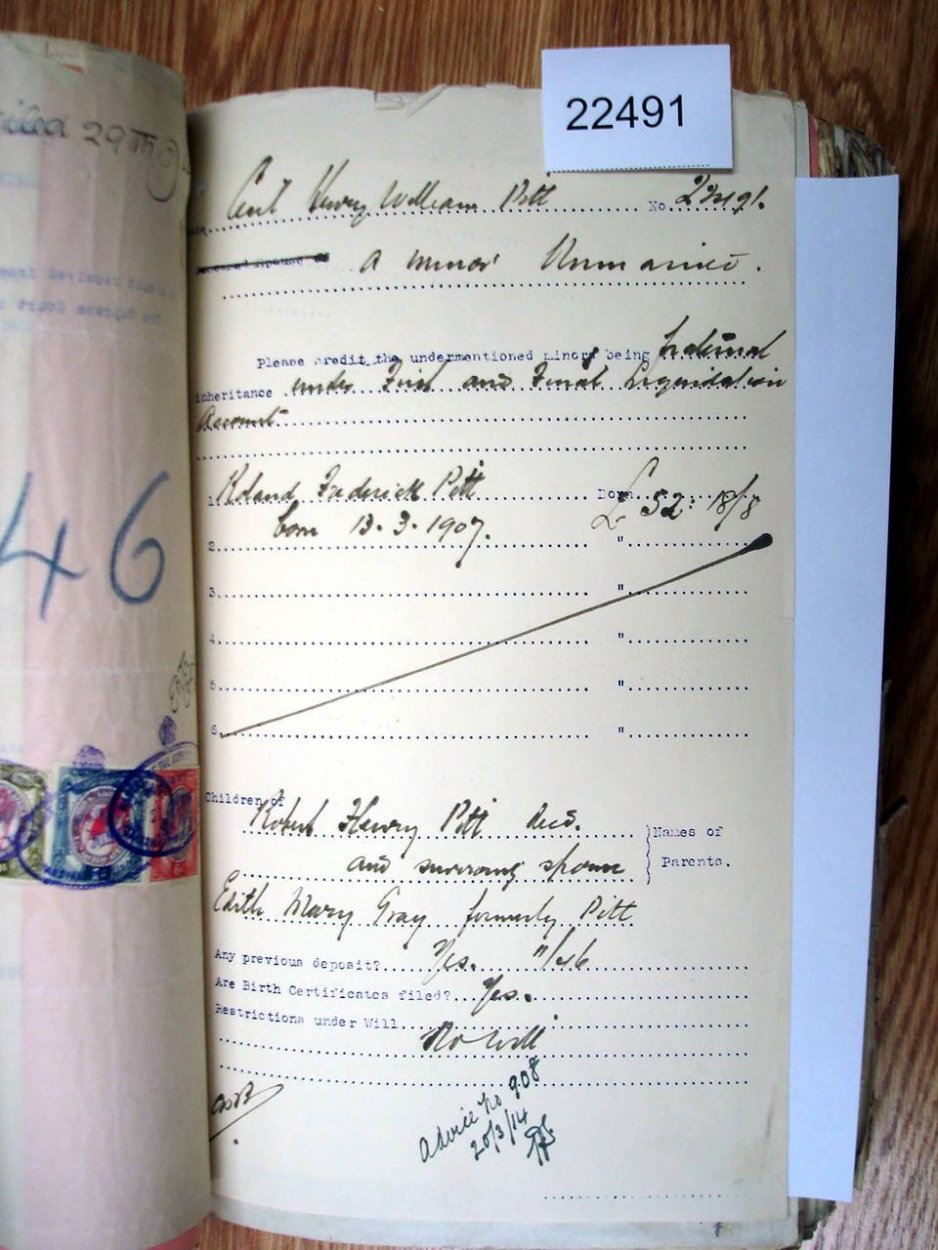 22491
filed 29
46
Cecil Henry William Pitt No. 22491.
a minor Unmarried.
Please credit the undermentioned minors being fraternal
inheritance under First and Final Liquidation
Account
1 Roland Frederick Pitt Born £ 52: 18/8
born 13.3.1907.
2 "
3 "
4 "
5 "
6 "
Children of
Robert Henry Pitt decd. Names of
and surviving spouse Parents.
Edith Mary Gray formerly Pitt
Any previous deposit? Yes. 11/46
Are Birth Certificates filed? Yes.
Restrictions under Will
No Will
Advice No 908
20/3/14